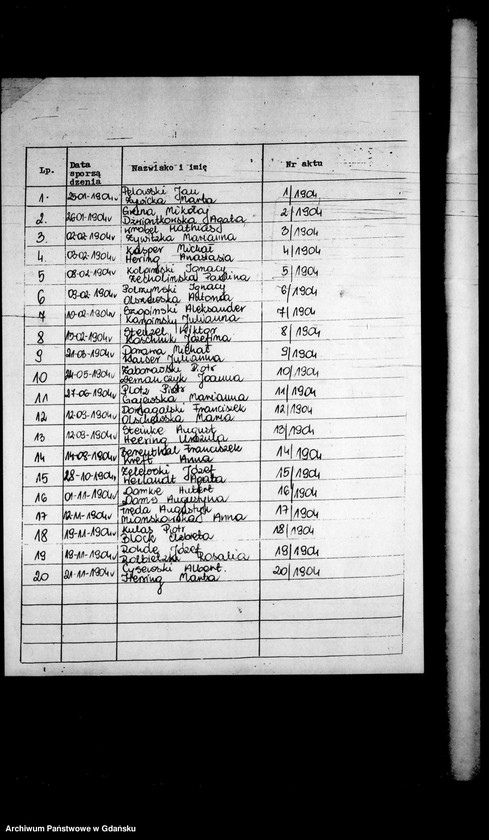 Lp. Data sporzą dzenia Nazwisko i imię Nr aktu
1. 25-01-1904r Pelowski Jan 1/1904
Żywicka Marta
2. 26-01-1904r Mikołaj 2/1904
Dziwiątkowska Agata
3. 02-02-1904r Wrobel Mathias 3/1904
Żywitzka Marianna
4. 03-02-1904r Kasper Michał 4/1904
Hering Anastasia
5 08-02-1904r Ignacy 5/1904
Zecholinska Paulina
6 09-02-1904r Połczyński Ignacy 6/1904
Olszewska Antonia
7 10-02-1904r Czapiński Aleksander 7/1904
Karpinsky Julianna
8 15-02-1904r Stenzel Wiktor 8/1904
Koschnik Józefina
9 21-05-1904r Dorawa Michał 9/1904
Kaiser Julianna
10 24-05-1904r Zaborowski Piotr 10/1904
Demańczyk Joanna
11 27-06-1904r Plotz Piotr 11/1904
Gajewska Marianna
12 12-09-1904r Domagalski Franciszek 12/1904
Olschewska Maria
13 12-09-1904r Steinke August 13/1904
Heering Urszula
14 14-09-1904r Berenthal Franciszek 14/1904
Kreft Anna
15 28-10-1904r Zelewski Józef 15/1904
Weilandt Agata
16 01-11-1904r Damke Hubert 16/1904
Dams Augustyna
17 12-11-1904r Freda Augustyn 17/1904
Mianskowska Anna
18 19-11-1904r Kulas Piotr 18/1904
Block Elżbieta
19 19-11-1904r Rohde Józef 19/1904
Rolbietzki Rosalia
20 21-11-1904r Cysewski Albert. 20/1904
Herring Marta
Archiwum Państwowe w Gdańsku